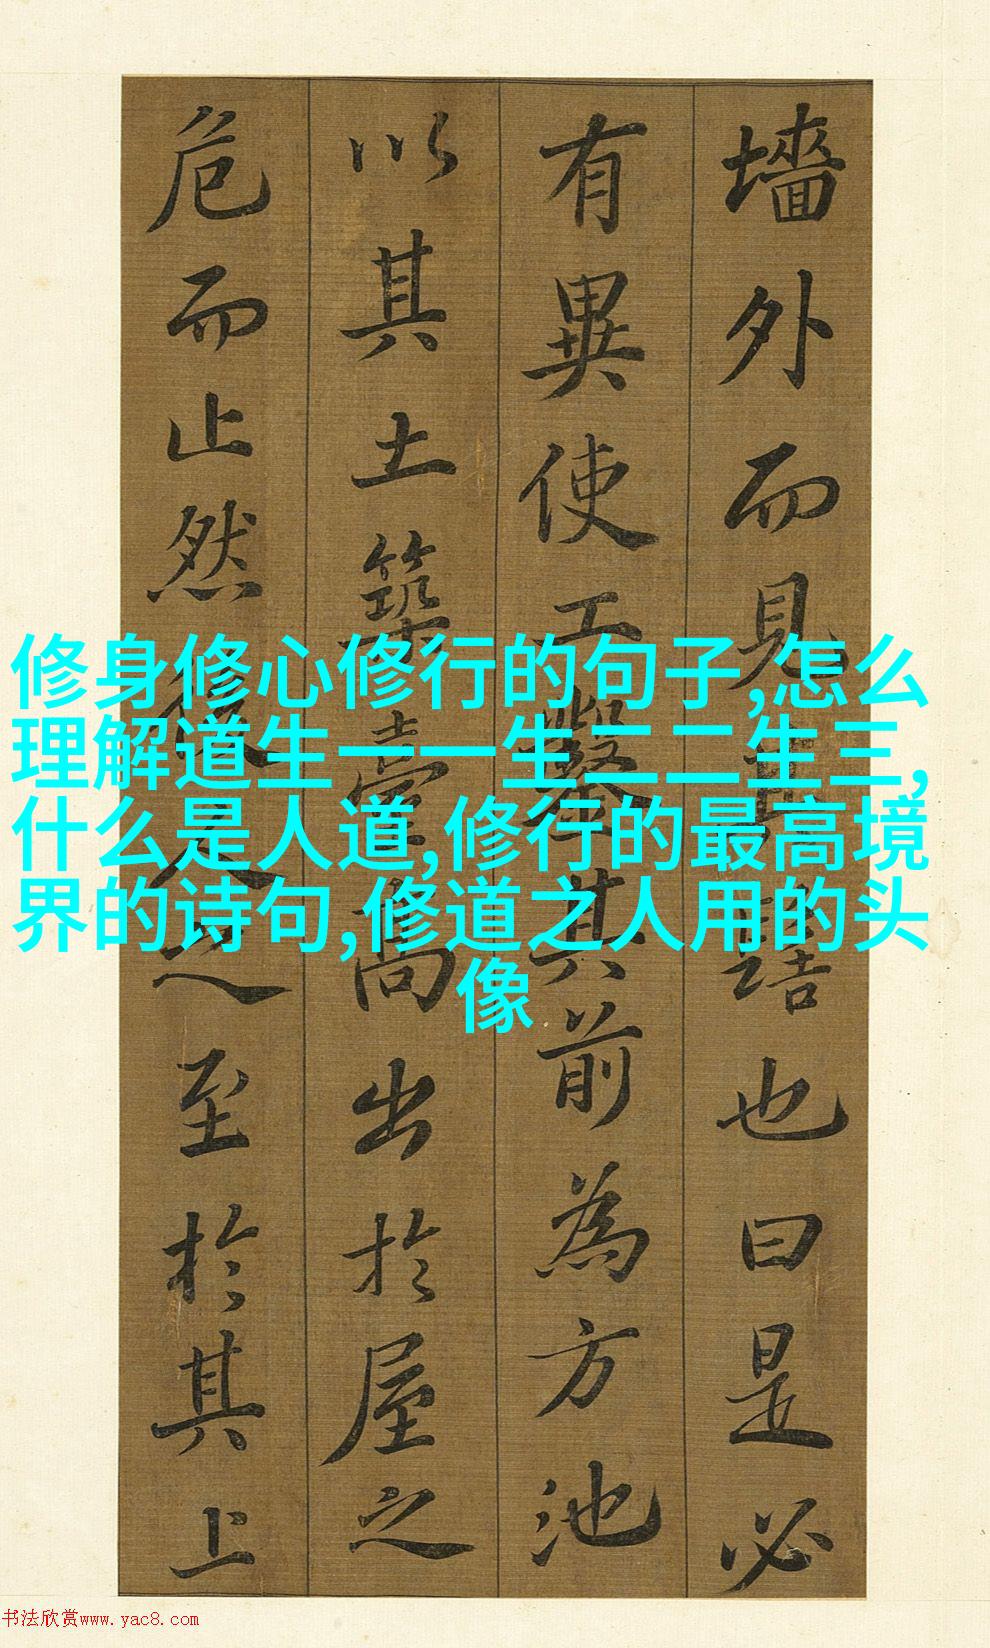 墻外而見其髻也曰是必
有異使工鑿其前為方池
以其土築臺高出於屋之
危而止然後人之至於其上
修身修心修行的句子,怎么
理解道生一一生二二生三,
什么是人道,修行的最高境
界的诗句,修道之人用的头
像
书法欣赏www.yac8.com